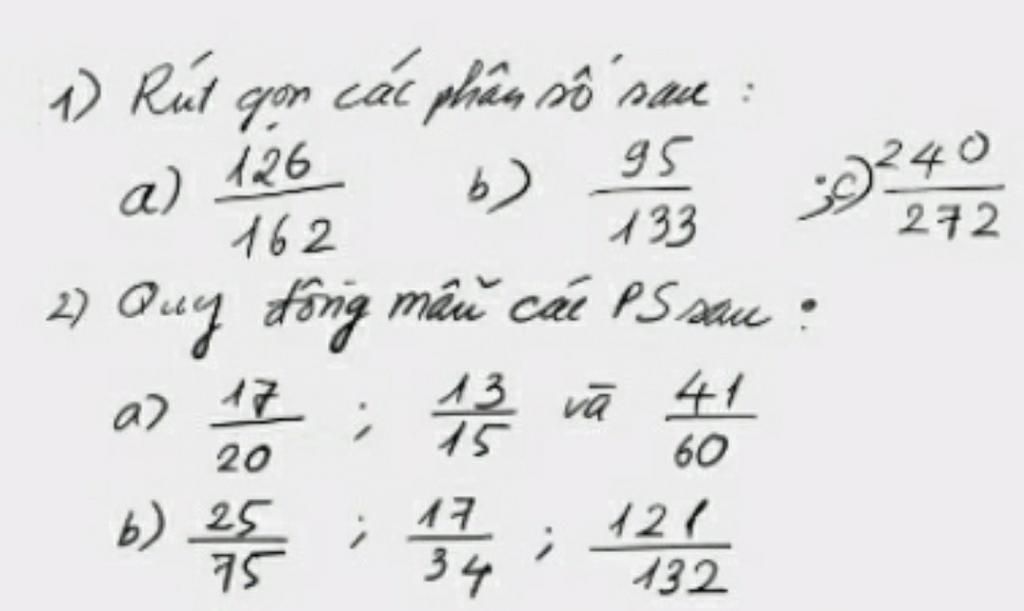 1) Rút gọn các phân số sau :
a) 126/162 b) 95/133 ; c) 240/272
2) Quy đồng mẫu các PS sau :
a) 17/20 ; 13/15 và 41/60
b) 25/75 ; 17/34 ; 121/132